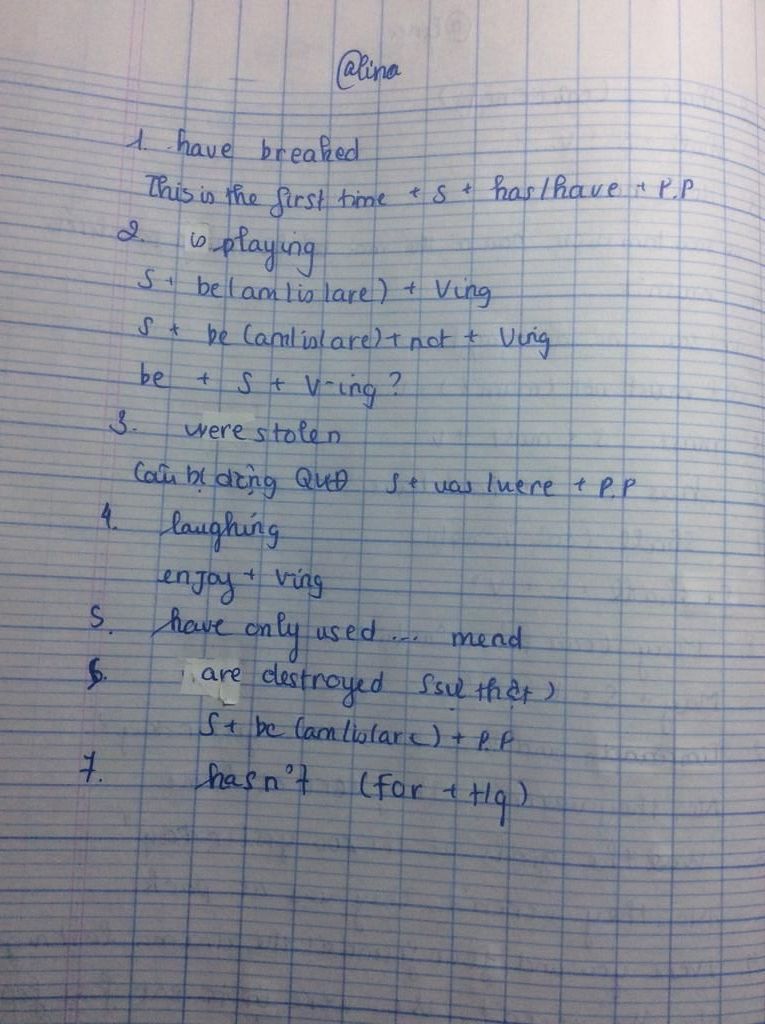 @lina
1. have breaked
This is the first time + S + has/have + P.P
2. is playing
S + be (am/is/are) + Ving
S + be (am/is/are) + not + Ving
be + S + V-ing ?
3. were stolen
Câu bị động QKĐ S + was/were + P.P
4. laughing
enjoy + Ving
5. have only used ... mend
6. are destroyed (sự thật)
S + be (am/is/are) + P.P
7. hasn't (for + t/g)